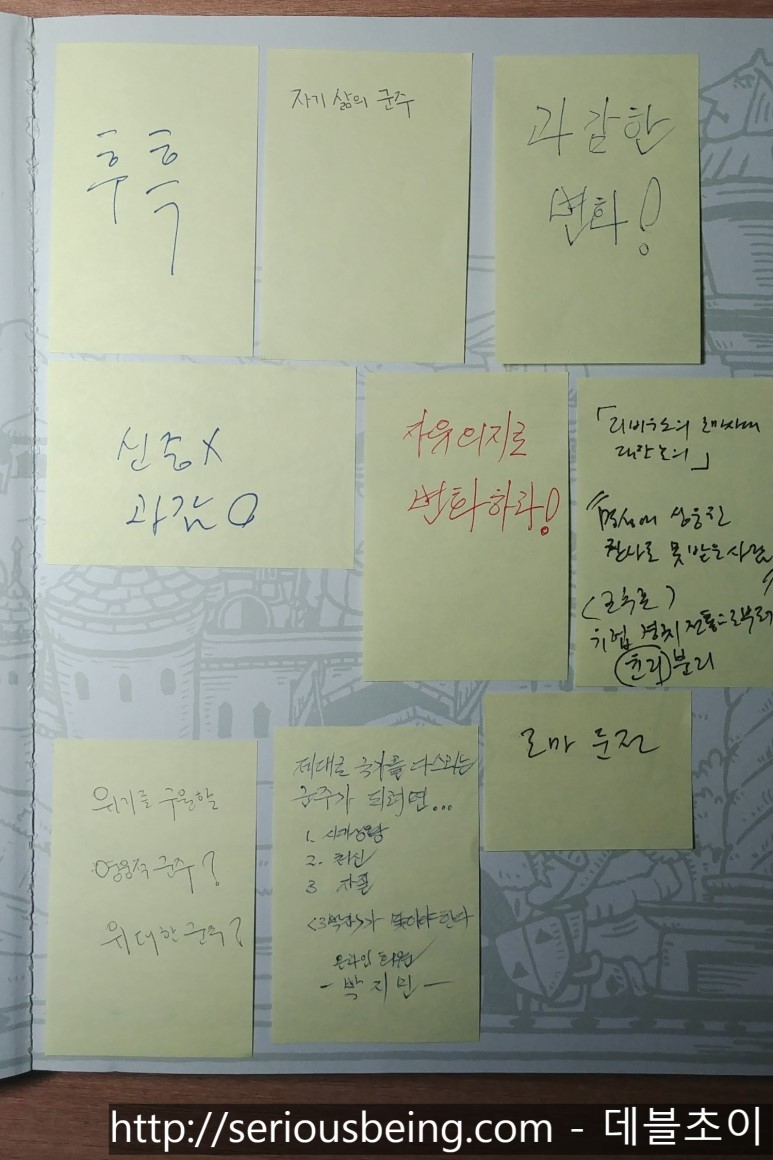 후흑
자기 삶의 군주
과감한
변화!
신중X
과감O
자유의지로
변화하라!
「리비우스의 로마사에
대한 논의」
명성에 상응한
찬사로 못 받은 사람
(군주론)
정치 전통으로부터
윤리 분리
로마 둔전
위기를 구원할
영웅적 군주?
위대한 군주?
제대로 국가를 다스리는
군주가 되려면...
1. 시대상황
2. 최신
3 자질
<3박자>가 맞아야 한다
온라인 회원
- 박지민 -
http://seriousbeing.com - 데블초이